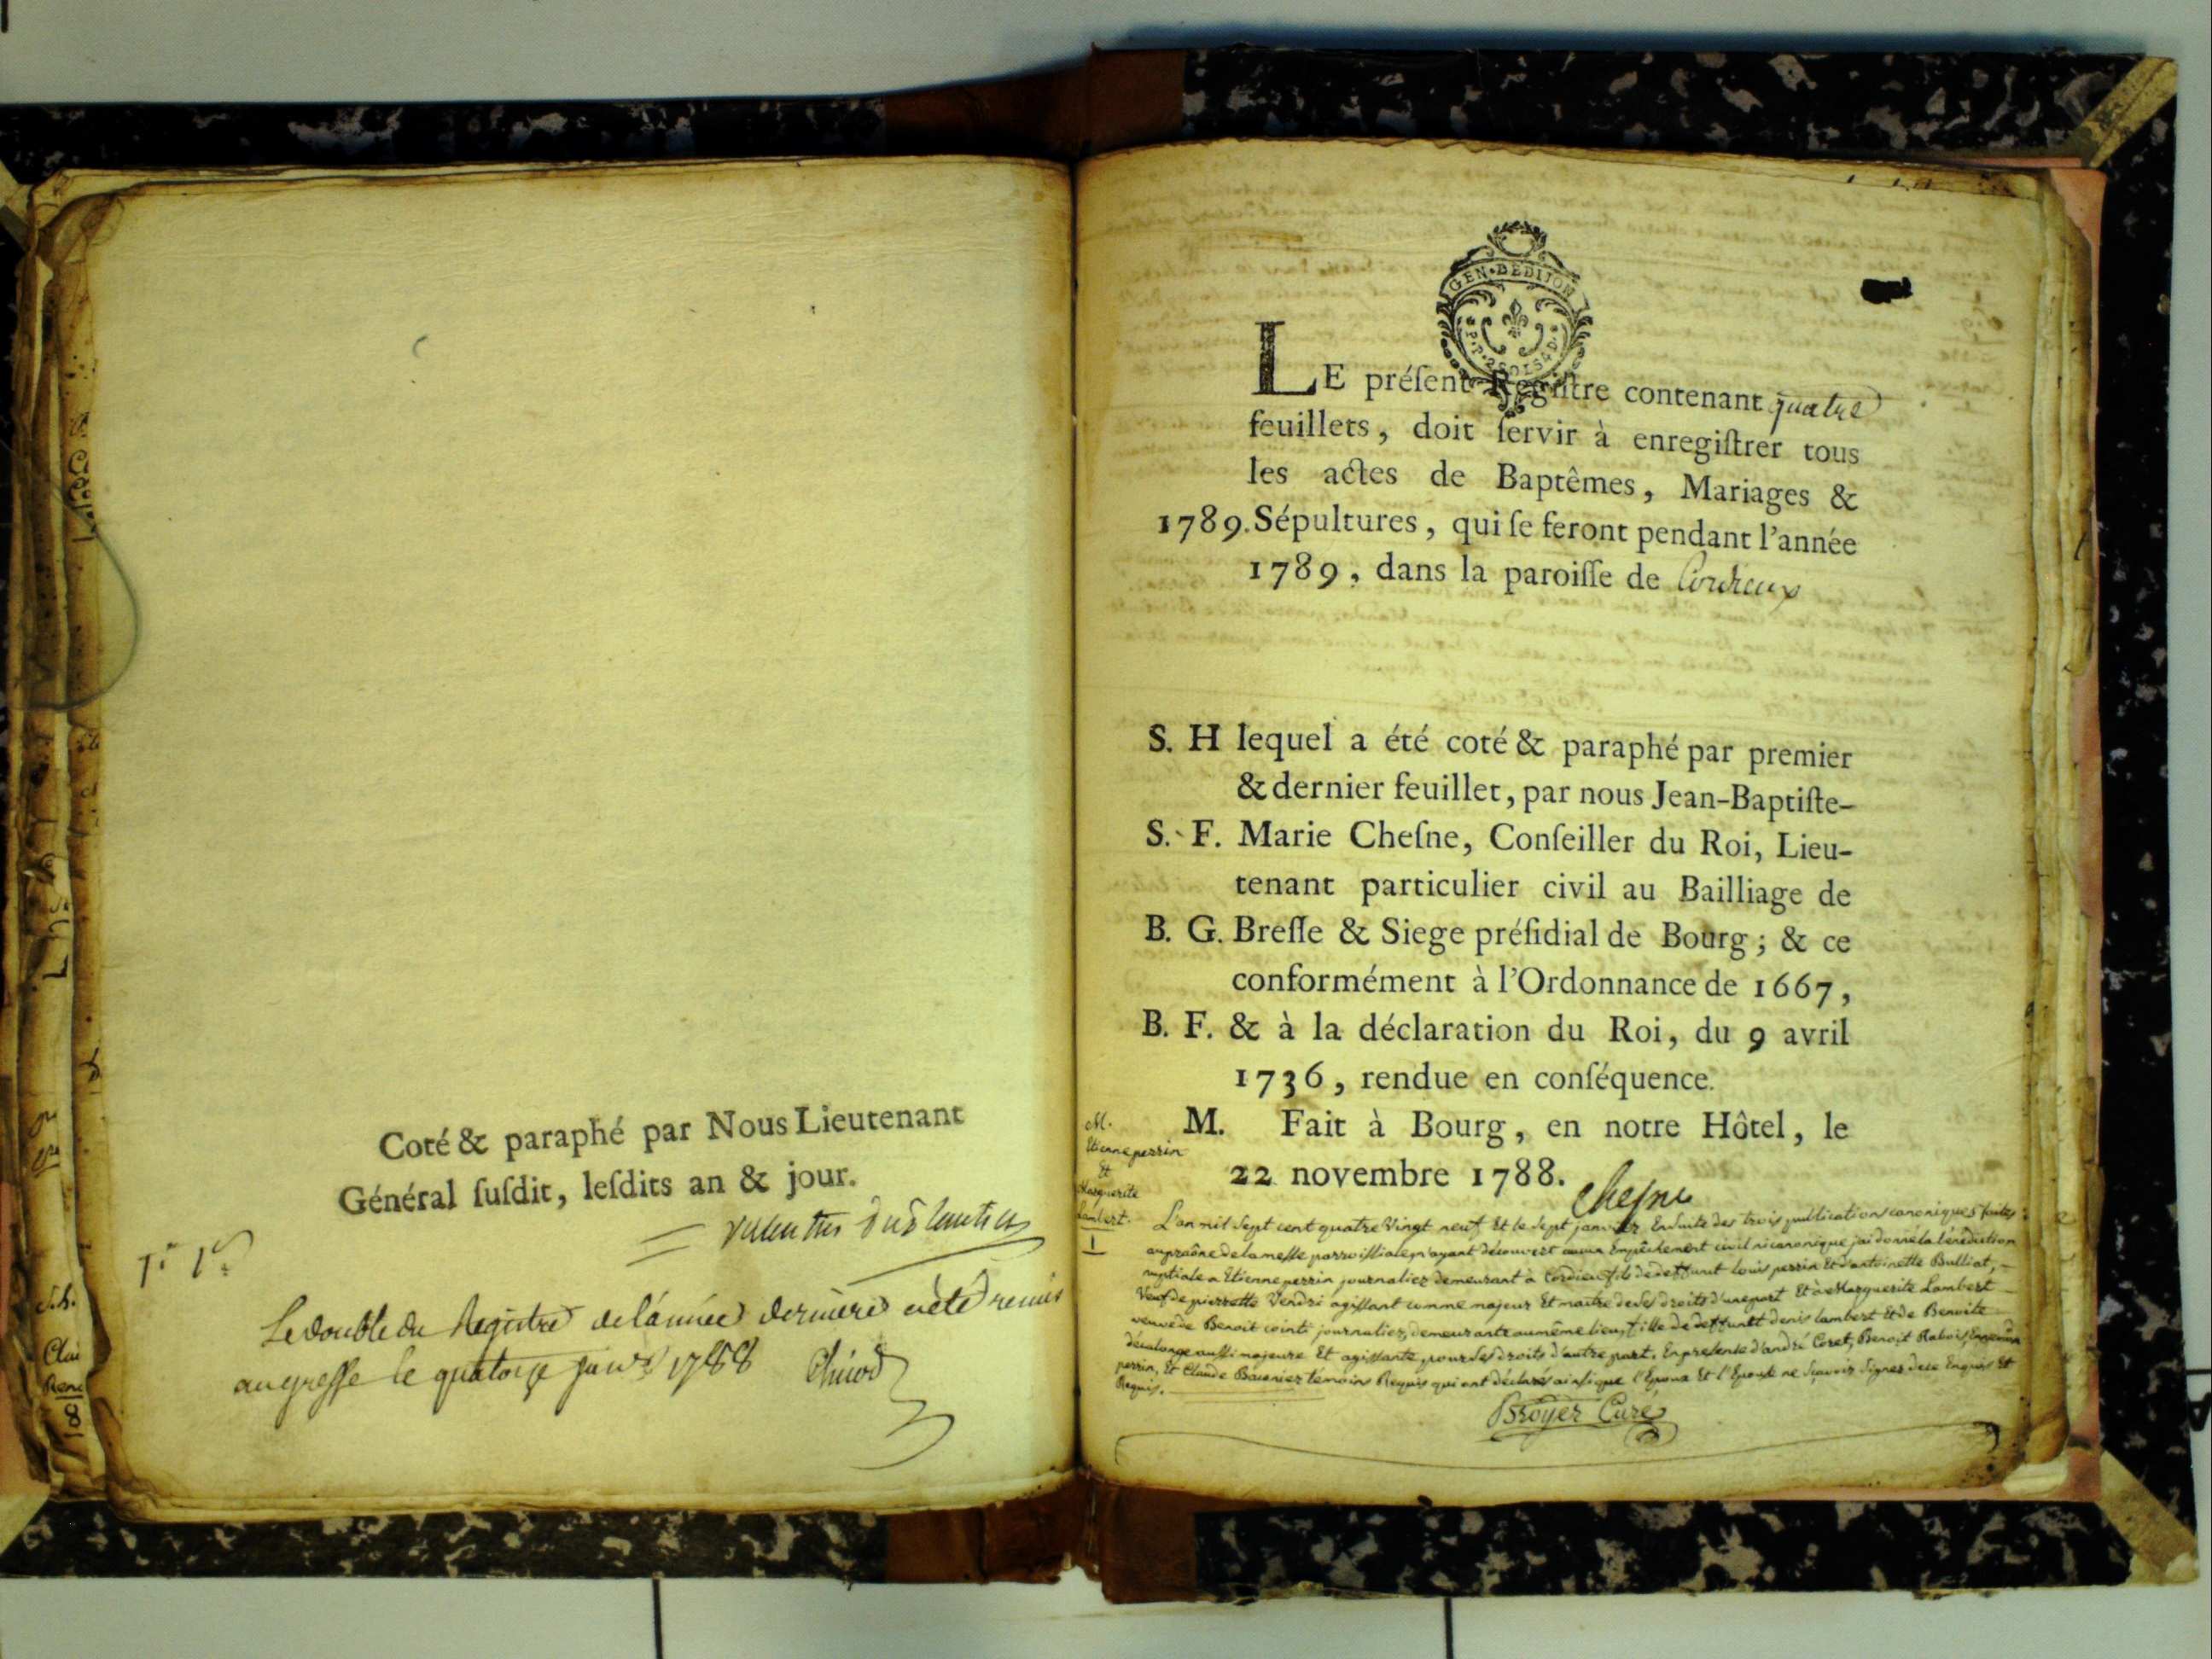 Coté & paraphé par Nous Lieutenant
Général ſuſdit, leſdits an & jour.
Le double du Registre de l'année derniere a été remis
au greffe le quatorze janv. 1788
GEN·DEDIJON
LE préſent Regiſtre contenant quatre
feuillets, doit ſervir à enregiſtrer tous
les actes de Baptêmes, Mariages &
1789. Sépultures, qui ſe feront pendant l'année
1789, dans la paroiſſe de Cordieux
S. H lequel a été coté & paraphé par premier
& dernier feuillet, par nous Jean-Baptiſte-
S. F. Marie Cheſne, Conſeiller du Roi, Lieu-
tenant particulier civil au Bailliage de
B. G. Breſſe & Siege préſidial de Bourg; & ce
conformément à l'Ordonnance de 1667,
B. F. & à la déclaration du Roi, du 9 avril
1736, rendue en conſéquence.
M. Fait à Bourg, en notre Hôtel, le
22 novembre 1788.
Chesne
M.
Etienne perrin
Et
Marguerite
Lambert.
1
L'an mil sept cent quatre Vingt neuf Et le sept janvier Ensuite des trois publications canoniques faites
au prône de la messe parroissiale n'ayant découvert aucun Empêchement civil ni canonique j'ai donné la bénédiction
nuptiale a Etienne perrin journalier demeurant à Cordieux fils de deffunt Louis perrin Et d'antoinette Bulliat,
Veuf de pierrette Vendri agissant comme majeur Et maitre de ses droits d'une part Et à Marguerite Lambert
veuve de Benoit cointi journalier, demeurante au même lieu, fille de deffunt denis lambert Et de Benoite
décalonge aussi majeure Et agissante pour ses droits d'autre part. En presence d'andré Coret, Benoit Rabois, Ennemon
perrin, Et Claude temoins Requis qui ont déclarés ainsi que l'Epoux Et l'Epouse ne sçavoir signer de ce Enquis Et
Requis.
Broyer Curé